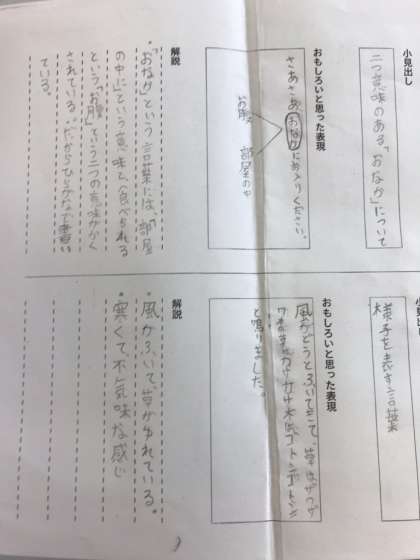 小見出し
二つ意味のある「おなか」について
おもしろいと思った表現
さあさあおなかにおはいりください。
お腹
部屋のなか
解説
・「おなか」という言葉には、「部屋
の中に」という意味と、食べられる
という「お腹」という二つの意味がかく
されている。だからひらがなで書い
ている。
小見出し
様子を表す言葉
おもしろいと思った表現
風がどうとふいてきて、草はザワザワ
木の葉はカサカサ、木はゴトンゴトン
と鳴りました。
解説
・風がふいて、草がゆれている。
・寒くて、不気味な感じ